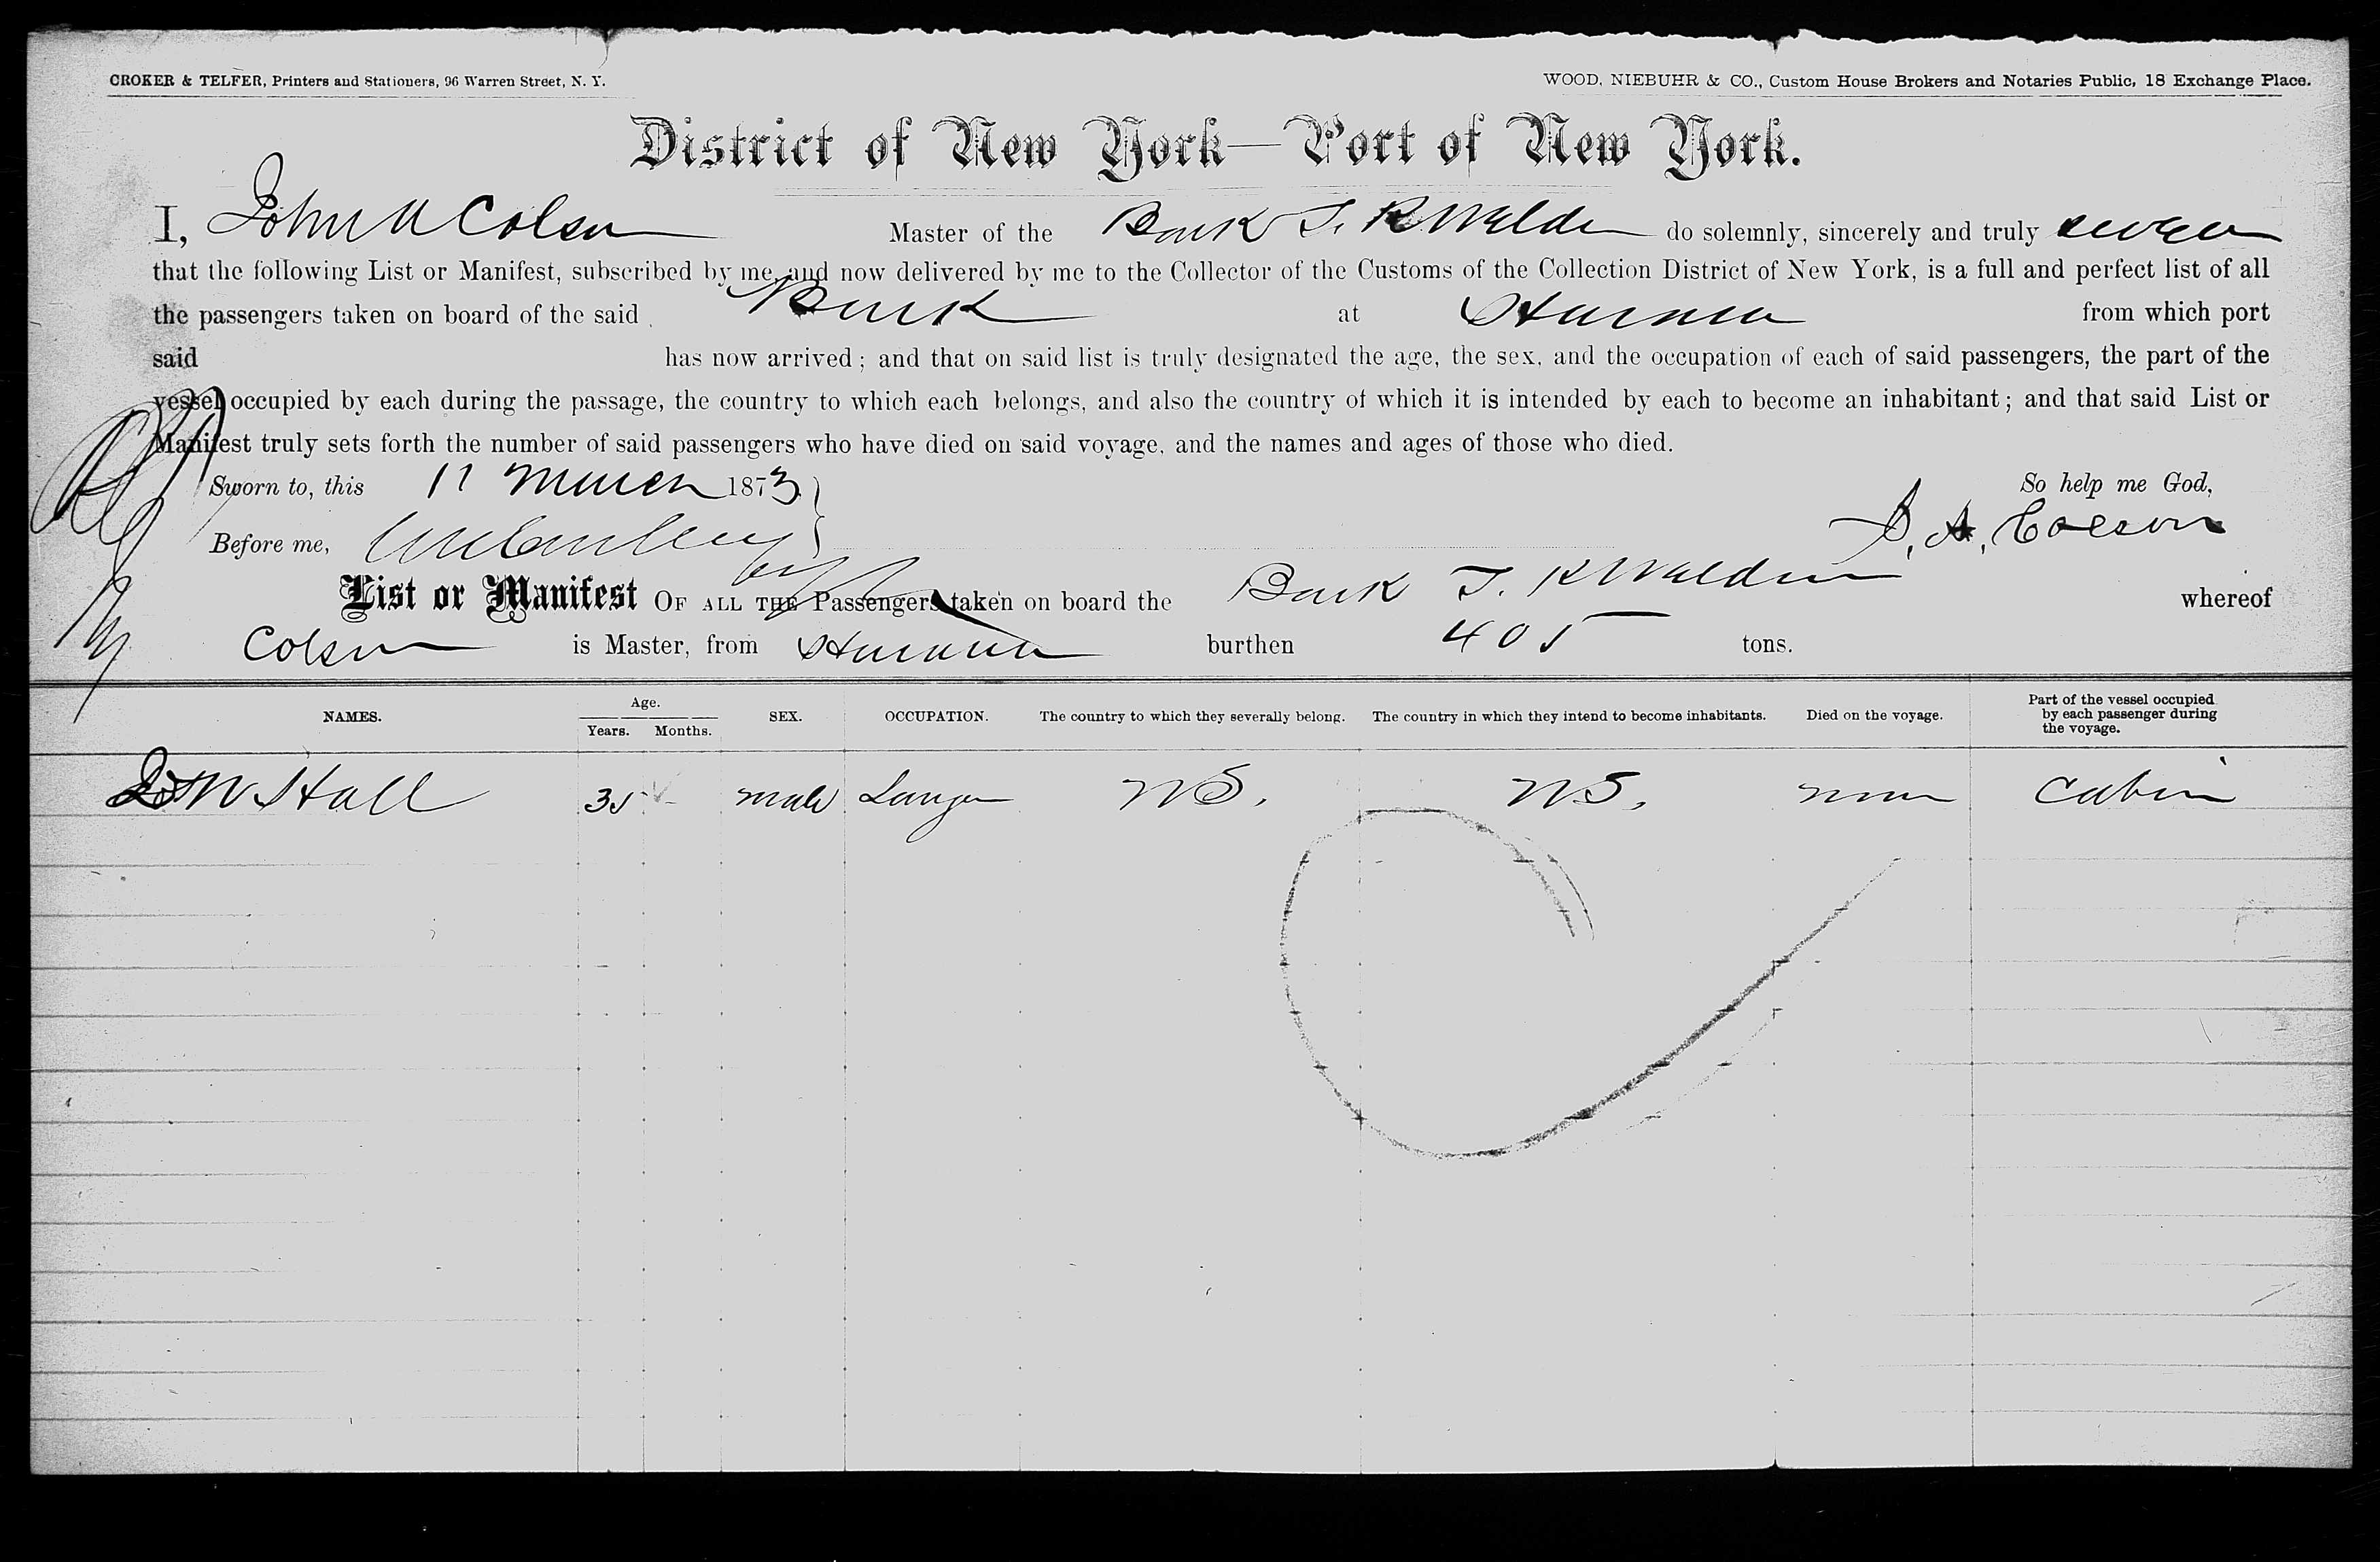 CROKER & TELFER, Printers and Stationers, 96 Warren Street, N. Y.
WOOD, NIEBUHR & CO., Custom House Brokers and Notaries Public, 18 Exchange Place.
District of New York—Port of New York.
I, John A Colson Master of the Bark T. K Weldon do solemnly, sincerely and truly swear
that the following List or Manifest, subscribed by me, and now delivered by me to the Collector of the Customs of the Collection District of New York, is a full and perfect list of all
the passengers taken on board of the said Bark at Havana from which port
said has now arrived; and that on said list is truly designated the age, the sex, and the occupation of each of said passengers, the part of the
vessel occupied by each during the passage, the country to which each belongs, and also the country of which it is intended by each to become an inhabitant; and that said List or
Manifest truly sets forth the number of said passengers who have died on said voyage, and the names and ages of those who died.
Sworn to, this 11 March 1873 So help me God,
Before me, J. A. Colson
List or Manifest OF ALL THE Passengers taken on board the Bark T. K Weldon whereof
Colson is Master, from Havana burthen 405 tons.
NAMES. Age. Years. Months. SEX. OCCUPATION. The country to which they severally belong. The country in which they intend to become inhabitants. Died on the voyage. Part of the vessel occupied by each passenger during the voyage.
W Hall 35 male U S. U S. none Cabin